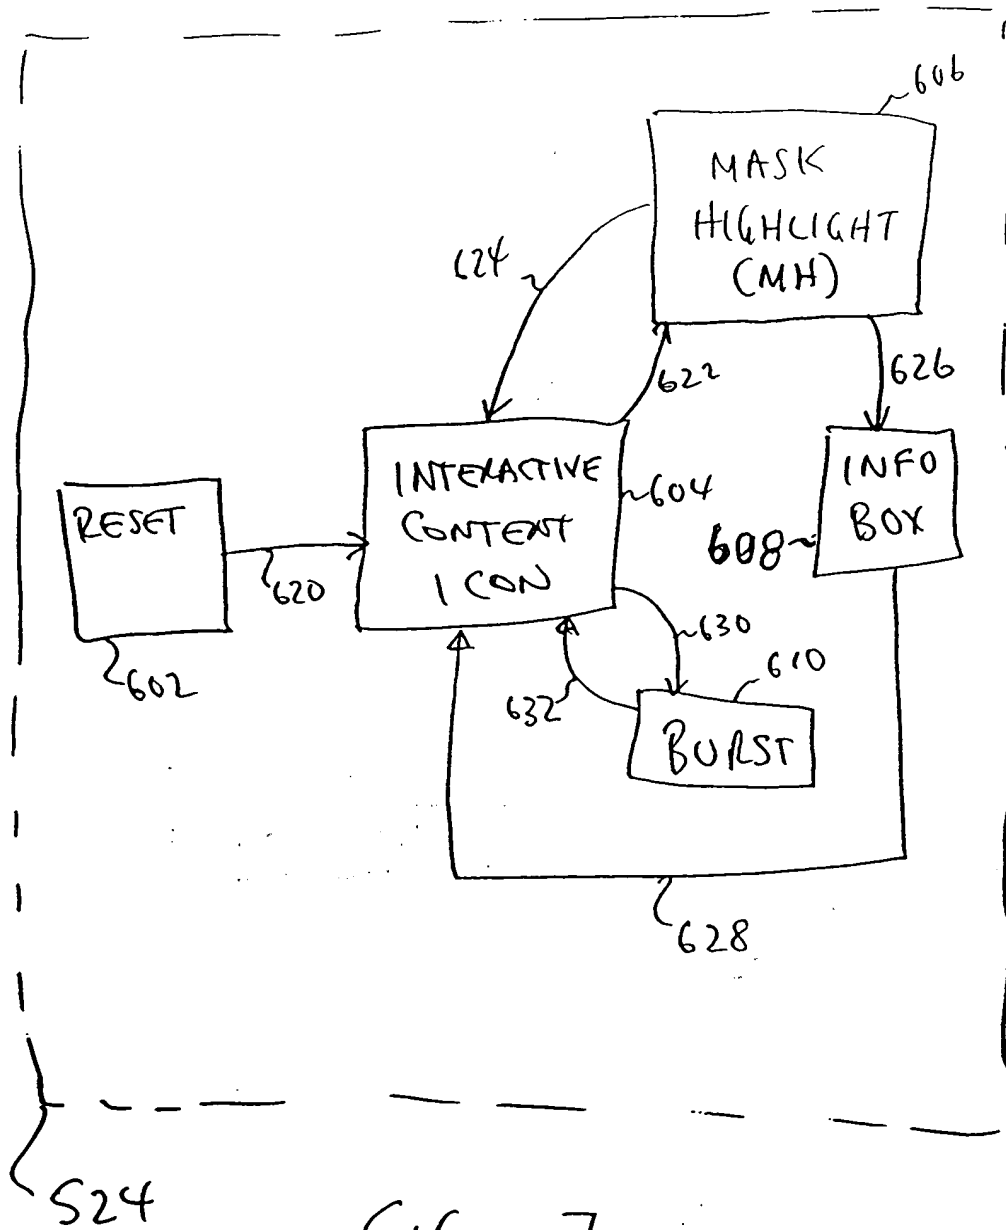 606
MASK
HIGHLIGHT
(MH)
624
622
626
INTERACTIVE
CONTENT
ICON
604
INFO
BOX
608
RESET
620
602
630
610
632
BURST
628
524